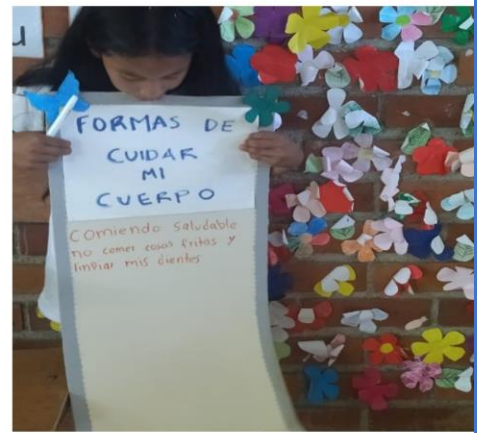 u
FORMAS DE
CUIDAR
MI
CUERPO
Comiendo Saludable
no comer cosas fritas y
limpiar mis dientes